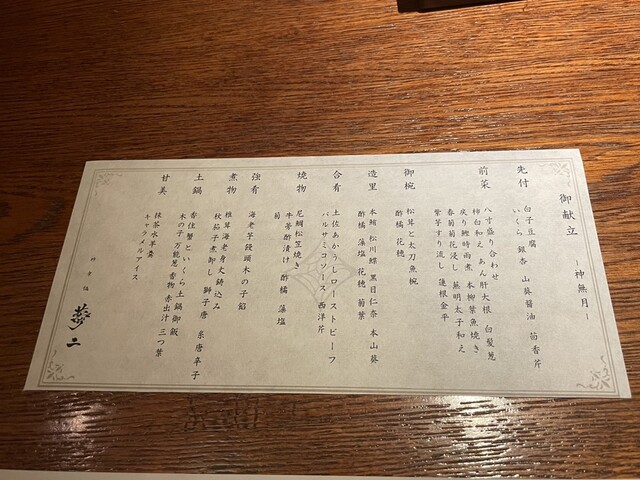 御献立 ―神無月―
先付 白子豆腐
いくら 銀杏 山葵醤油 茴香芹
前菜 八寸盛り合わせ
柿白和え あん肝大根 白髪葱
戻り鰹時雨煮 本柳葉魚焼き
春菊菊花浸し 蕪明太子和え
紫芋すり流し 蓮根金平
御椀 松茸と太刀魚椀
酢橘 花穂
造里 本鮪 松川鰈 黒目仁奈 本山葵
酢橘 藻塩 花穂 菊葉
合肴 土佐あかうしローストビーフ
バルサミコソース 西洋芹
焼物 尼鯛松笠焼き
牛蒡酢漬け 酢橘 藻塩
菊
強肴 海老芋饅頭木の子餡
煮物 椎茸海老身丈鋳込み
秋茄子煮卸し 獅子唐 糸唐辛子
土鍋 香住蟹といくら土鍋御飯
木の子 万能葱 香物 赤出汁 三つ葉
甘美 抹茶水羊羹
キャラメルアイス
二